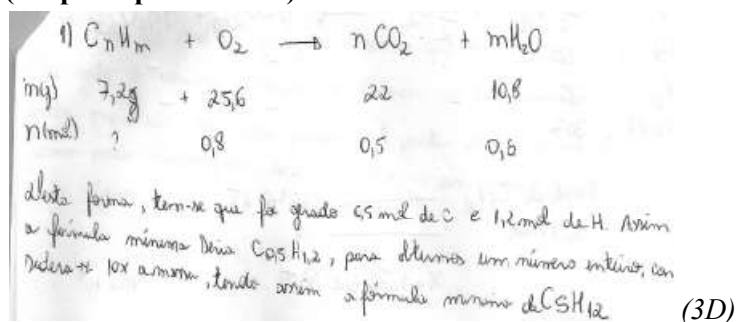 1) CnHm + O2 → nCO2 + mH2O
m(g) 7,2g + 25,6 22 10,8
n(mol) ? 0,8 0,5 0,6
desta forma, tem-se que foi gerado 0,5 mol de C e 1,2 mol de H. Assim
a fórmula mínima seria C0,5H1,2, para obtermos um número inteiro, con
sidera-se 10x a mesma, tendo assim a fórmula mínima de C5H12
(3D)